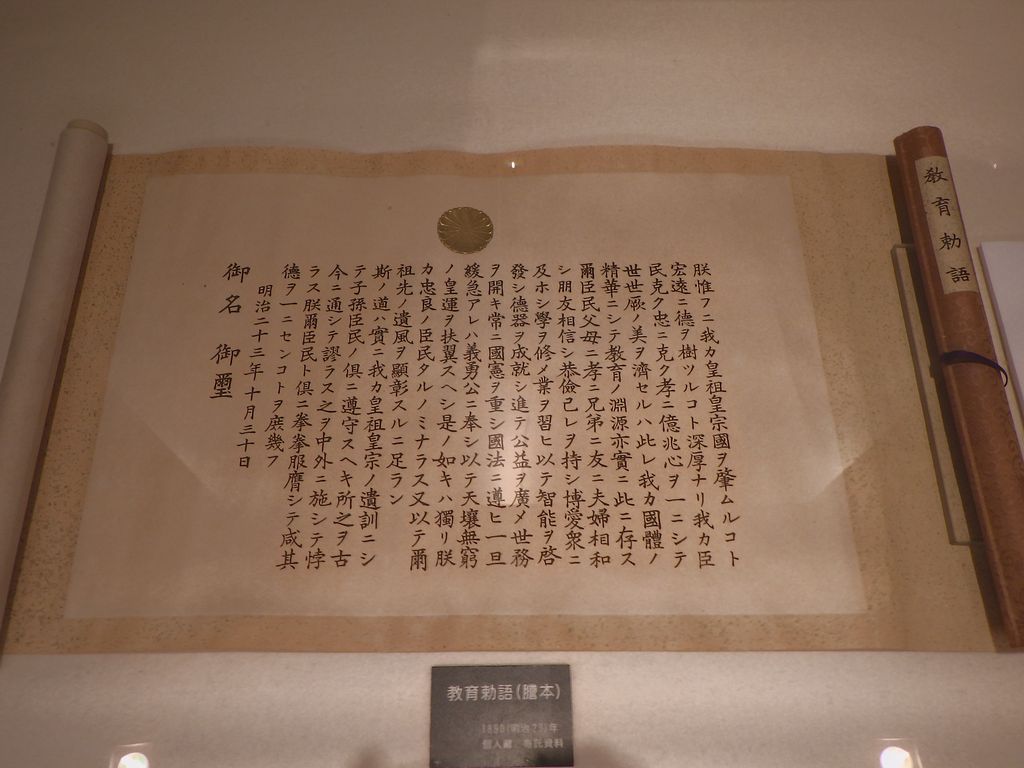 教育勅語
朕惟フニ我カ皇祖皇宗國ヲ肇ムルコト
宏遠ニ德ヲ樹ツルコト深厚ナリ我カ臣
民克ク忠ニ克ク孝ニ億兆心ヲ一ニシテ
世世厥ノ美ヲ濟セルハ此レ我カ國體ノ
精華ニシテ教育ノ淵源亦實ニ此ニ存ス
爾臣民父母ニ孝ニ兄弟ニ友ニ夫婦相和
シ朋友相信シ恭儉己レヲ持シ博愛衆ニ
及ホシ學ヲ修メ業ヲ習ヒ以テ智能ヲ啓
發シ德器ヲ成就シ進テ公益ヲ廣メ世務
ヲ開キ常ニ國憲ヲ重シ國法ニ遵ヒ一旦
緩急アレハ義勇公ニ奉シ以テ天壤無窮
ノ皇運ヲ扶翼スヘシ是ノ如キハ獨リ朕
カ忠良ノ臣民タルノミナラス又以テ爾
祖先ノ遺風ヲ顯彰スルニ足ラン
斯ノ道ハ實ニ我カ皇祖皇宗ノ遺訓ニシ
テ子孫臣民ノ倶ニ遵守スヘキ所之ヲ古
今ニ通シテ謬ラス之ヲ中外ニ施シテ悖
ラス朕爾臣民ト倶ニ拳拳服膺シテ咸其
德ヲ一ニセンコトヲ庶幾フ
明治二十三年十月三十日
御名 御璽
教育勅語(謄本)
1890(明治23)年
個人蔵 寄託資料